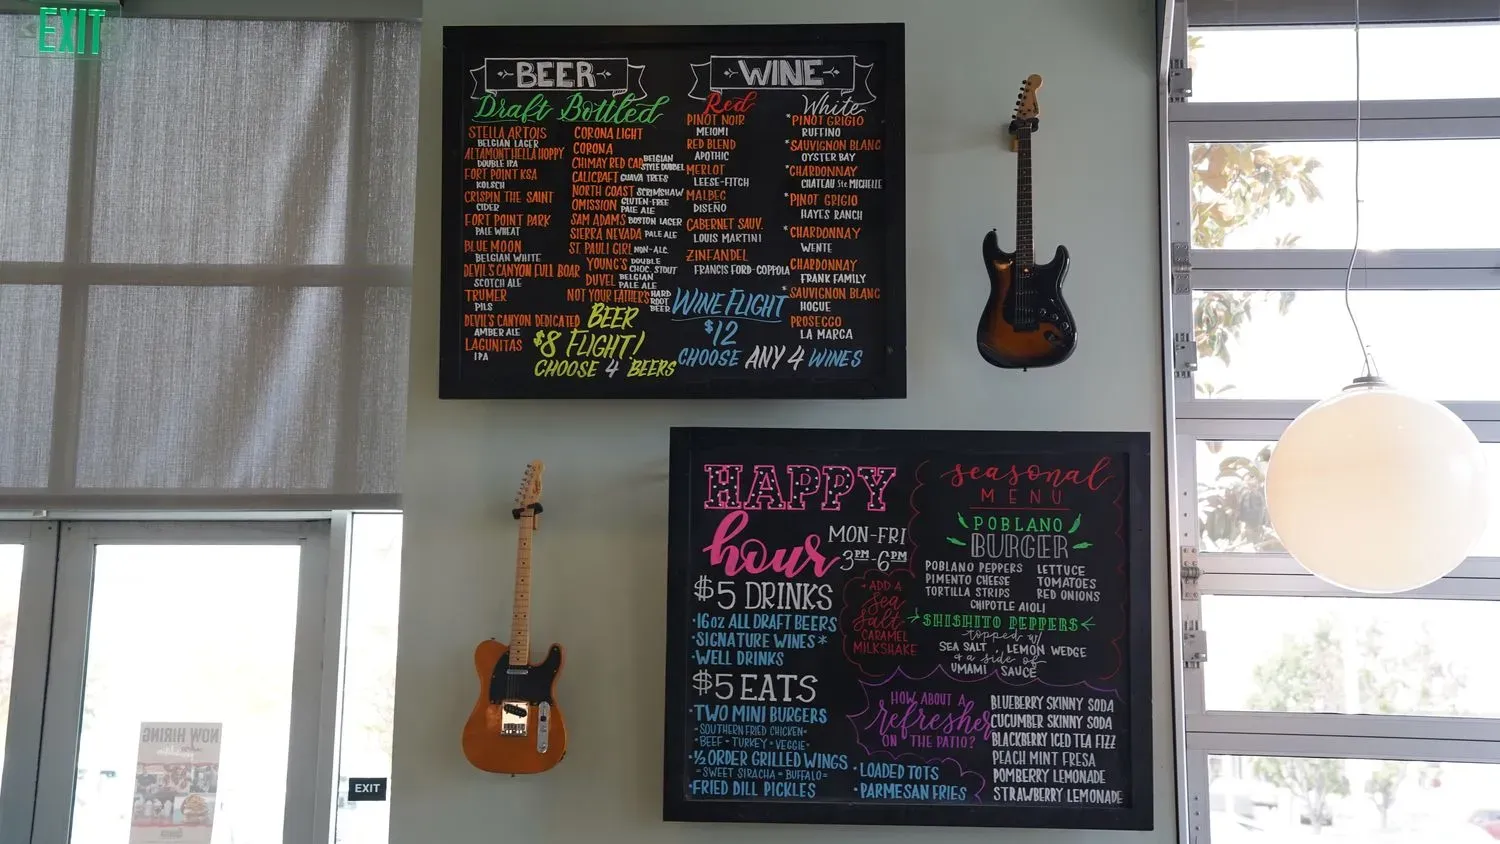 EXIT
BEER
Draft Bottled
STELLA ARTOIS
BELGIAN LAGER
ALTAMONT HELLA HOPPY
DOUBLE IPA
FORT POINT KSA
KOLSCH
CRISPIN THE SAINT
CIDER
FORT POINT PARK
PALE WHEAT
BLUE MOON
BELGIAN WHITE
DEVIL'S CANYON FULL BOAR
SCOTCH ALE
TRUMER
PILS
DEVIL'S CANYON DEDICATED
AMBER ALE
LAGUNITAS
IPA
CORONA LIGHT
CORONA
CHIMAY RED CAP BELGIAN STYLE DUBBEL
CALICRAFT GUAVA TREES
NORTH COAST SCRIMSHAW
OMISSION GLUTEN-FREE PALE ALE
SAM ADAMS BOSTON LAGER
SIERRA NEVADA PALE ALE
ST. PAULI GIRL NON-ALC.
YOUNG'S DOUBLE CHOC. STOUT
DUVEL BELGIAN PALE ALE
NOT YOUR FATHER'S HARD ROOT BEER
BEER
$8 FLIGHT!
CHOOSE 4 BEERS
WINE
Red
PINOT NOIR
MEIOMI
RED BLEND
APOTHIC
MERLOT
LEESE-FITCH
MALBEC
DISEÑO
CABERNET SAUV.
LOUIS MARTINI
ZINFANDEL
FRANCIS FORD-COPPOLA
White
*PINOT GRIGIO
RUFFINO
*SAUVIGNON BLANC
OYSTER BAY
*CHARDONNAY
CHATEAU Ste MICHELLE
*PINOT GRIGIO
HAYES RANCH
*CHARDONNAY
WENTE
CHARDONNAY
FRANK FAMILY
*SAUVIGNON BLANC
HOGUE
PROSECCO
LA MARCA
WINE FLIGHT
$12
CHOOSE ANY 4 WINES
HAPPY
hour
MON-FRI
3PM-6PM
$5 DRINKS
·16oz ALL DRAFT BEERS
·SIGNATURE WINES*
·WELL DRINKS
$5 EATS
·TWO MINI BURGERS
·SOUTHERN FRIED CHICKEN·
·BEEF·TURKEY·VEGGIE·
·½ ORDER GRILLED WINGS
-SWEET SIRACHA-BUFFALO-
·FRIED DILL PICKLES
·LOADED TOTS
·PARMESAN FRIES
·ADD A
Sea
Salt
CARAMEL
MILKSHAKE
seasonal
MENU
POBLANO
BURGER
POBLANO PEPPERS
PIMENTO CHEESE
TORTILLA STRIPS
LETTUCE
TOMATOES
RED ONIONS
CHIPOTLE AIOLI
SHISHITO PEPPERS
topped w/
SEA SALT · LEMON WEDGE
& a side of
UMAMI SAUCE
HOW ABOUT A
refresher
ON THE PATIO?
BLUEBERRY SKINNY SODA
CUCUMBER SKINNY SODA
BLACKBERRY ICED TEA FIZZ
PEACH MINT FRESA
POMBERRY LEMONADE
STRAWBERRY LEMONADE
NOW HIRING
EXIT